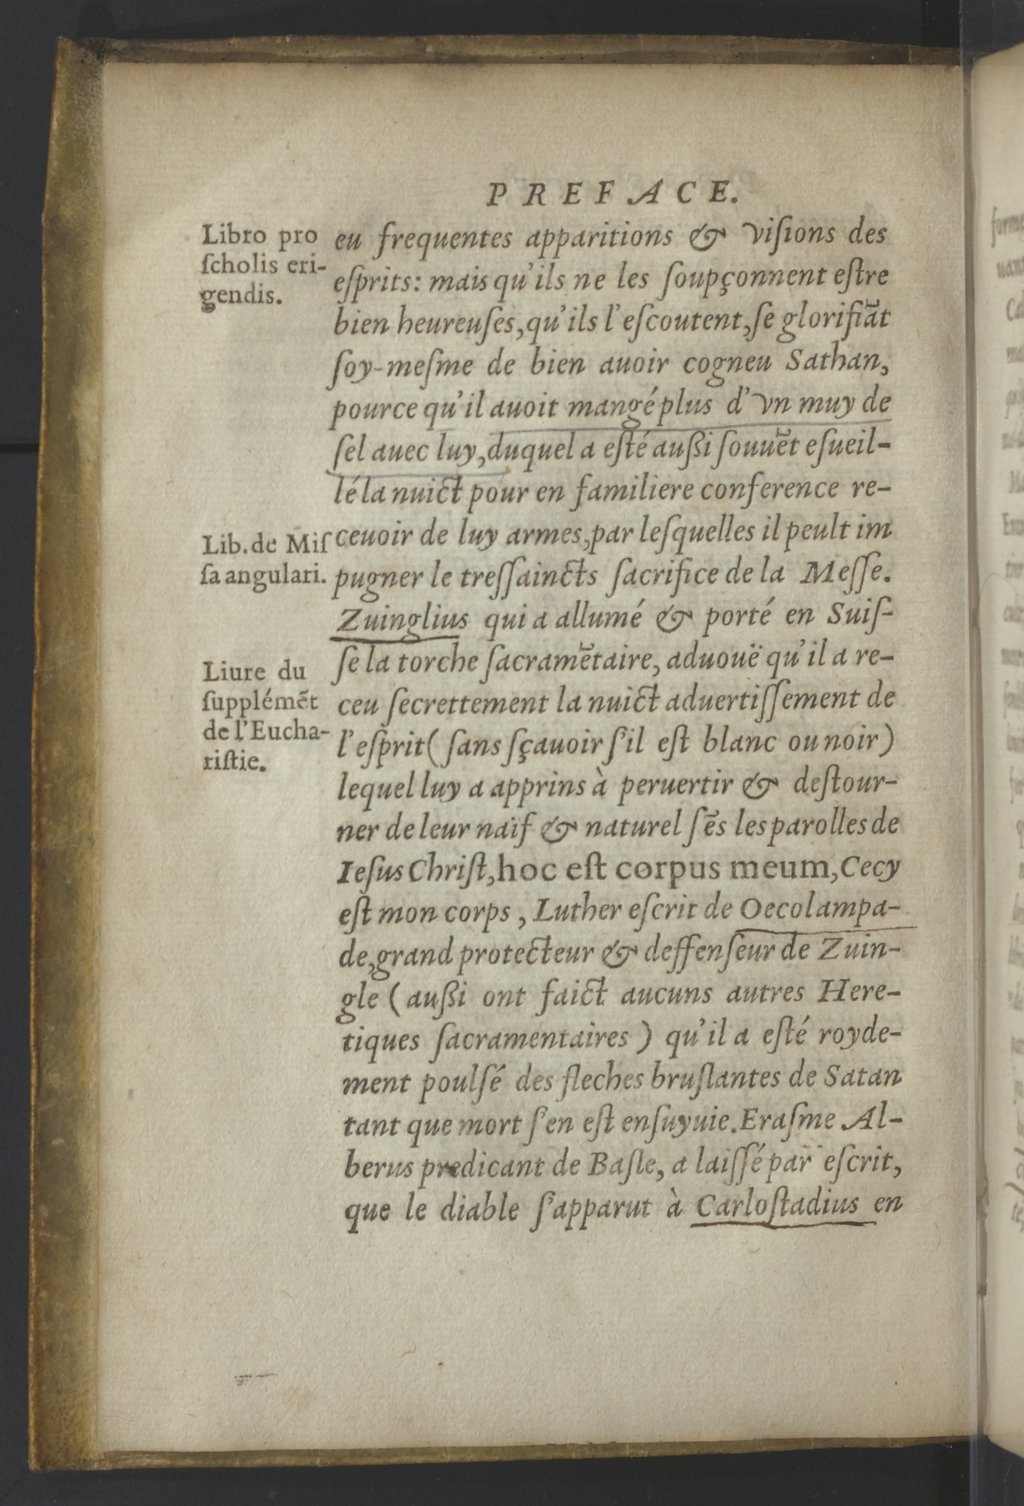 PREFACE.
Libro pro
ſcholis eri-
gendis.
eu frequentes apparitions & viſions des
eſprits: mais qu'ils ne les ſoupçonnent eſtre
bien heureuſes, qu'ils l'eſcoutent, ſe glorifiãt
ſoy-meſme de bien auoir cogneu Sathan,
pource qu'il auoit mangé plus d'vn muy de
ſel auec luy, duquel a eſté außi ſouuẽt eſueil-
lé la nuict pour en familiere conference re-
Lib. de Miſ
ſa angulari.
ceuoir de luy armes, par leſquelles il peult im
pugner le treſſaincts ſacrifice de la Meſſe.
Zuinglius qui a allumé & porté en Suiſ-
Liure du
ſupplémẽt
de l'Eucha-
riſtie.
ſe la torche ſacramẽtaire, aduouë qu'il a re-
ceu ſecrettement la nuict aduertiſſement de
l'eſprit (ſans ſçauoir ſ'il eſt blanc ou noir)
lequel luy a apprins à peruertir & deſtour-
ner de leur naïf & naturel ſẽs les parolles de
Ieſus Chriſt, hoc eſt corpus meum, Cecy
eſt mon corps, Luther eſcrit de Oecolampa-
de, grand protecteur & deffenſeur de Zuin-
gle (außi ont faict aucuns autres Here-
tiques ſacramentaires) qu'il a eſté royde-
ment poulſé des fleches bruſlantes de Satan
tant que mort ſ'en eſt enſuyuie. Eraſme Al-
berus prędicant de Baſle, a laiſſé par eſcrit,
que le diable ſ'apparut à Carloſtadius en